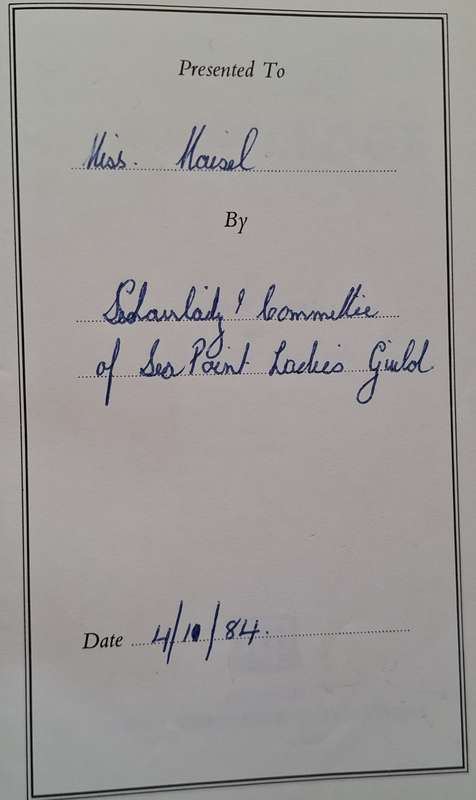 Presented To
Miss. Maisel
By
& Committee
of Sea Point Ladies Guild
Date 4/10/84.